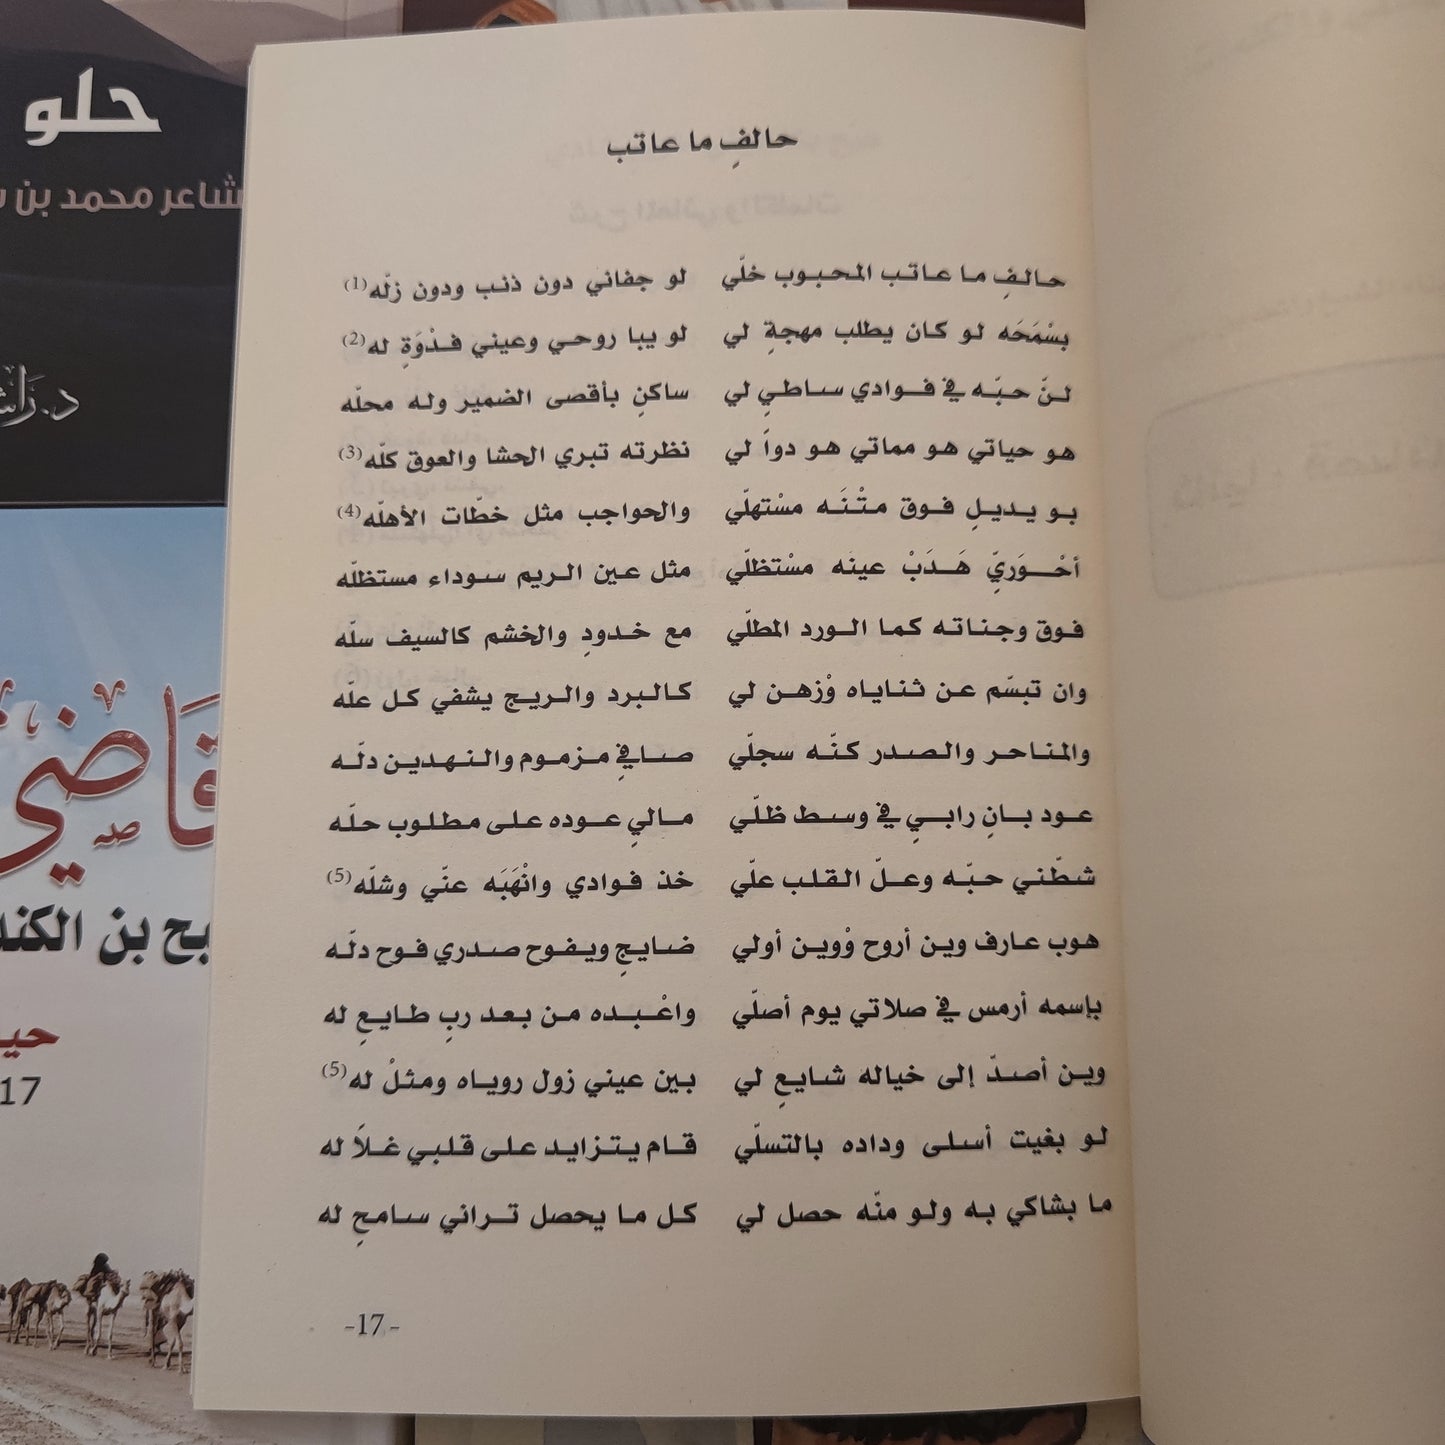 حالفِ ما عاتب
حالفِ ما عاتب المحبوب خلّي لو جفاني دون ذنب ودون زلّه(1)
بسْمَحَه لو كان يطلب مهجةِ لي لو يبا روحي وعيني فدْوَةِ له(2)
لنّ حبّه في فوادي ساطيِ لي ساكنِ بأقصى الضمير وله محلّه
هو حياتي هو مماتي هو دواَ لي نظرته تبري الحشا والعوق كلّه(3)
بو يديلِ فوق متْنَه مسْتهلّي والحواجب مثل خطّات الأهلّه(4)
أحْوَريِّ هَدَبْ عينه مسْتظلّي مثل عين الريم سوداء مستظلّه
فوق وجناته كما الورد المطلّي مع خدودِ والخشم كالسيف سلّه
وان تبسّم عن ثناياه وْزهن لي كالبرد والريج يشفي كل علّه
والمناحر والصدر كنّه سجلّي صافيِ مزموم والنهدين دلّه
عود بانِ رابيِ في وسط ظلّي ماليِ عوده على مطلوب حلّه
شطّني حبّه وعلّ القلب علّي خذ فوادي وانْهَبَه عنّي وشلّه(5)
هوب عارف وين أروح وْوين أولي ضايجِ ويفوح صدري فوح دلّه
بإسمه أرمس في صلاتي يوم أصلّي واعْبده من بعد ربِ طايعِ له
وين أصدّ إلى خياله شايعِ لي بين عيني زول روياه ومثلْ له(5)
لو بغيت أسلى وداده بالتسلّي قام يتزايد على قلبي غلاَ له
ما بشاكي به ولو منّه حصل لي كل ما يحصل تراني سامحِ له
-17-
حلو
شاعر محمد بن
د. راش
قاضي
بح بن الكند
حيـ
17